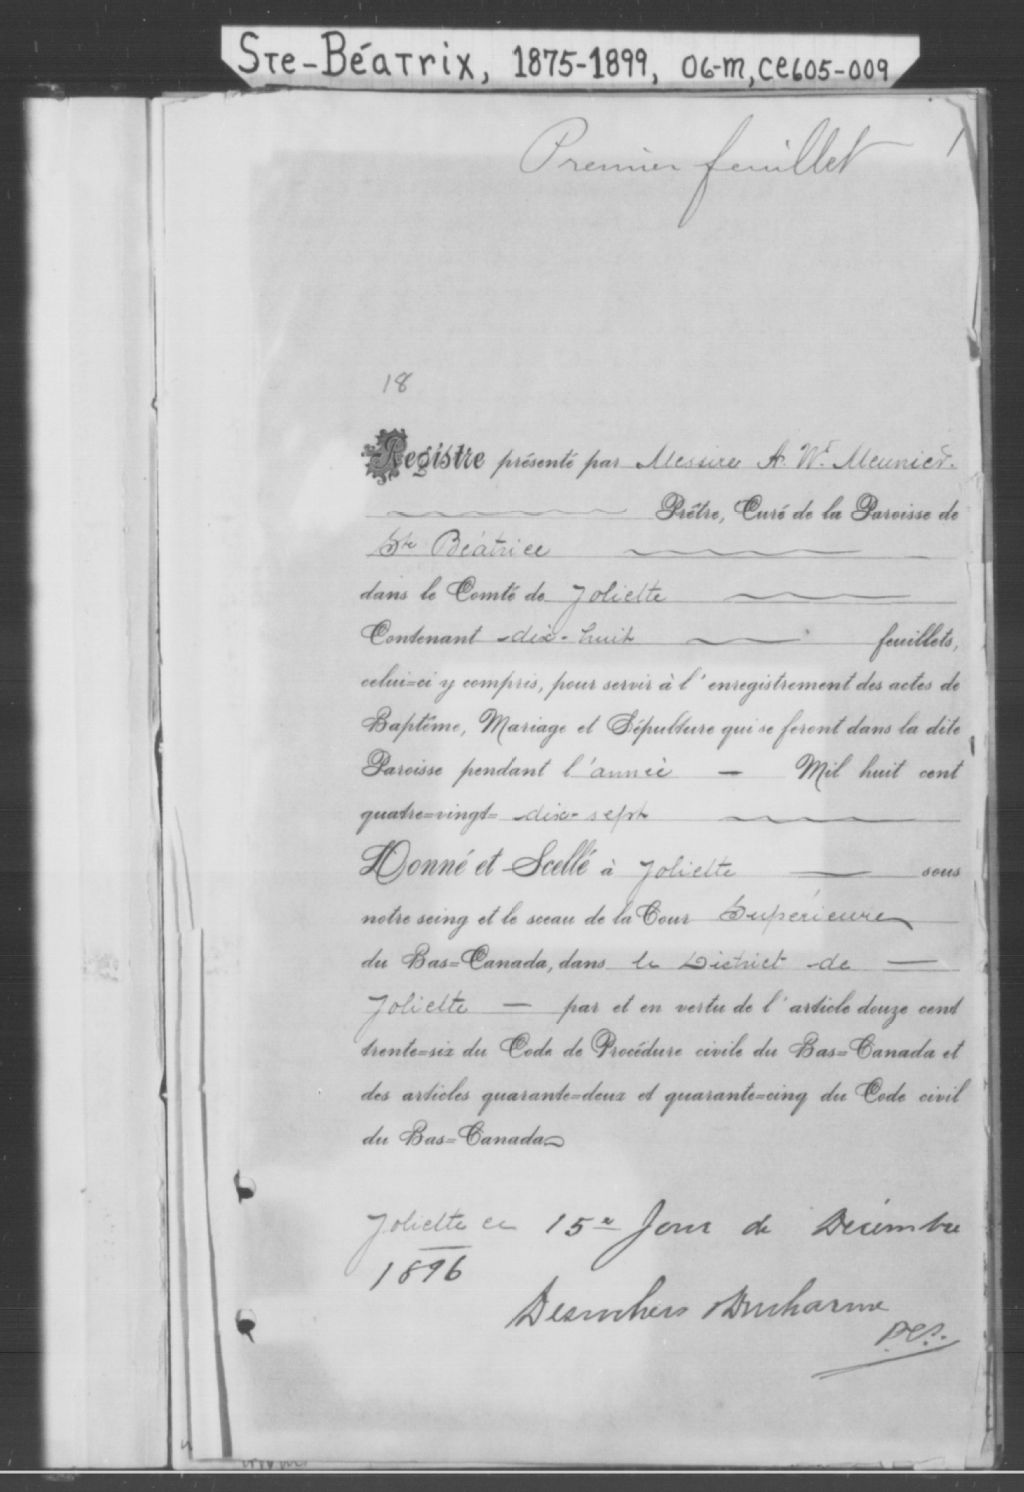 Ste-Béatrix, 1875-1899, 06-M, CE605-009
Premier feuillet 1
18
Registre présenté par Messire A. W. Meunier.
Prêtre, Curé de la Paroisse de
Ste Béatrice
dans le Comté de Joliette
Contenant dix-huit feuillets,
celui=ci y compris, pour servir à l'enregistrement des actes de
Baptême, Mariage et Sépulture qui se feront dans la dite
Paroisse pendant l'année — Mil huit cent
quatre=vingt= dix-sept
Donné et Scellé à Joliette — sous
notre seing et le sceau de la Cour Supérieure
du Bas=Canada, dans le District de —
Joliette — par et en vertu de l'article douze cent
trente=six du Code de Procédure civile du Bas=Canada et
des articles quarante=deux et quarante=cinq du Code civil
du Bas=Canada
Joliette ce 15e Jour de Décembre
1896
Desrochers & Ducharme
P.C.S.